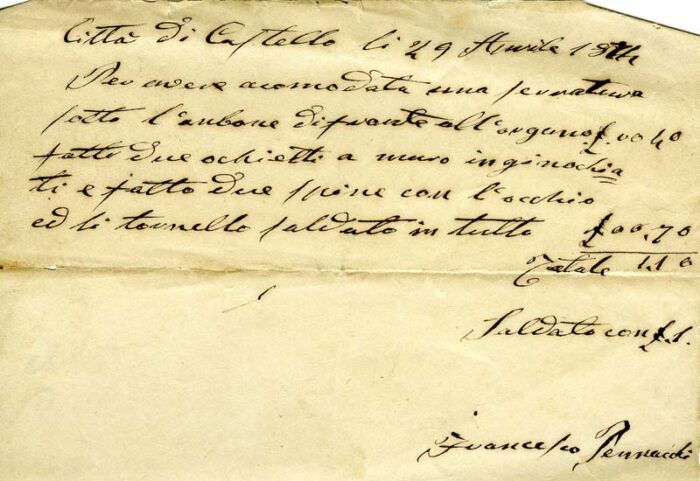 Città di Castello li 29 Aprile 1874
Per avere acomodata una serratura
sotto l'anbone difronte all'organo £ 00 40
fatti due ochietti a muro inginochia
ti e fatto due spine con l'occhio
ed li tornello saldato in tutto £ 00,70
Totale 1.10
Saldato con £ 1.
Francesco